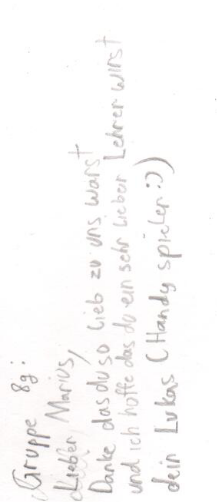 Gruppe 8g:
Lieber Marius,
Danke das du so lieb zu uns warst
und ich hoffe das du ein sehr lieber Lehrer wirst
dein Lukas (Handy spieler :))